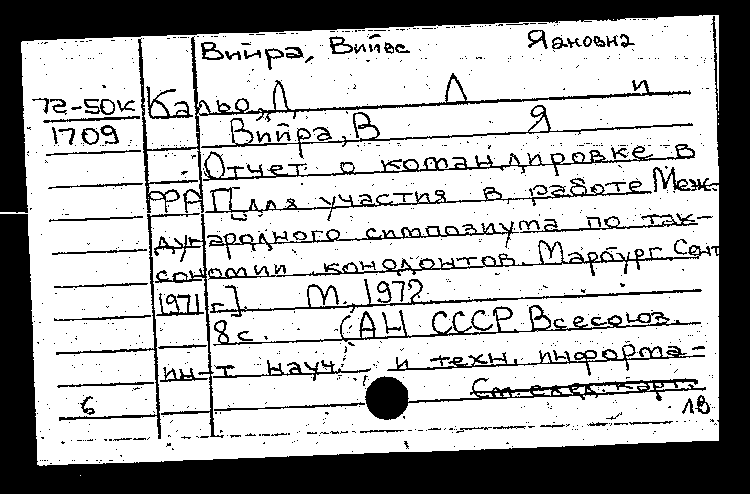 Вийра, Вийве Яановна
72-50к Кальо, Д Л и
1709 Вийра, В Я
Отчет о командировке в
ФРГ [для участия в работе Меж-
дународного симпозиума по так-
сономии конодонтов. Марбург. Сент
1971 г.] М., 1972
8 с. (АН СССР. Всесоюз.
ин-т науч. и техн. информа-
См. след. карт.
6 18